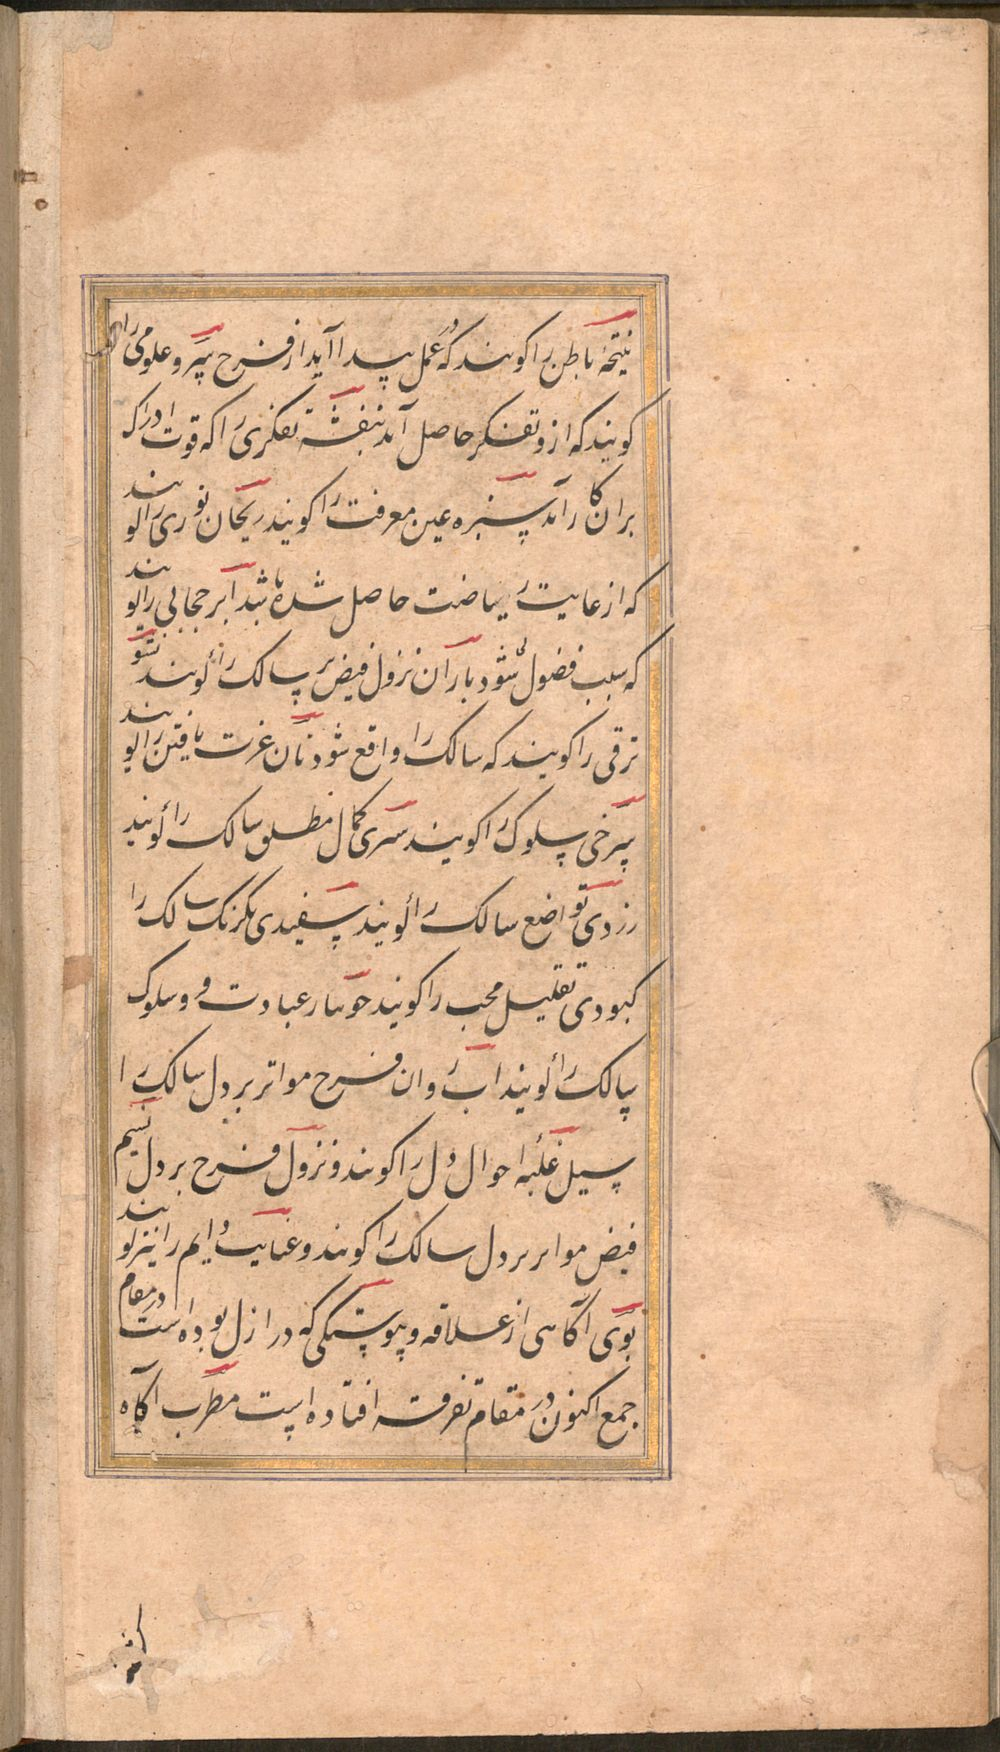 نتیجهٔ باطن را کویند که در عمل پیدا آید از فرح سرو علومی را
کویند که از و تفکر حاصل آید بنفشه تفکری را که قوت ادراک
بران کار آید سبزه عین معرفت را کویند ریحان نوری را کویند
که از غایت ریاضت حاصل شده باشد ابر حجابی را کویند
که سبب فضول شود باران نزول فیض بر سالک را کویند نشو
ترقی را کویند که سالک را واقع شود نان عزت یافتن را کویند
سرخی سلوک را کویند سری کمال مطلق سالک را کویند
زردی تواضع سالک را کویند سفیدی یکرنک سالک را
کبودی تقلیل محب را کویند جوبار عبادت و سلوک
سالک را کویند اب روان فرح مواتر بر دل سالک را
سیل غلبه احوال دل را کویند و نزول فرح بر دل نسیم
فیض مواتر بر دل سالک را کویند و عنایت دایم را نیز کویند
بوی اکاهی از علاقه و پیوستکی که در ازل بوده است در مقام
جمع اکنون در مقام تفرقه افتاده است مطرب اکاه